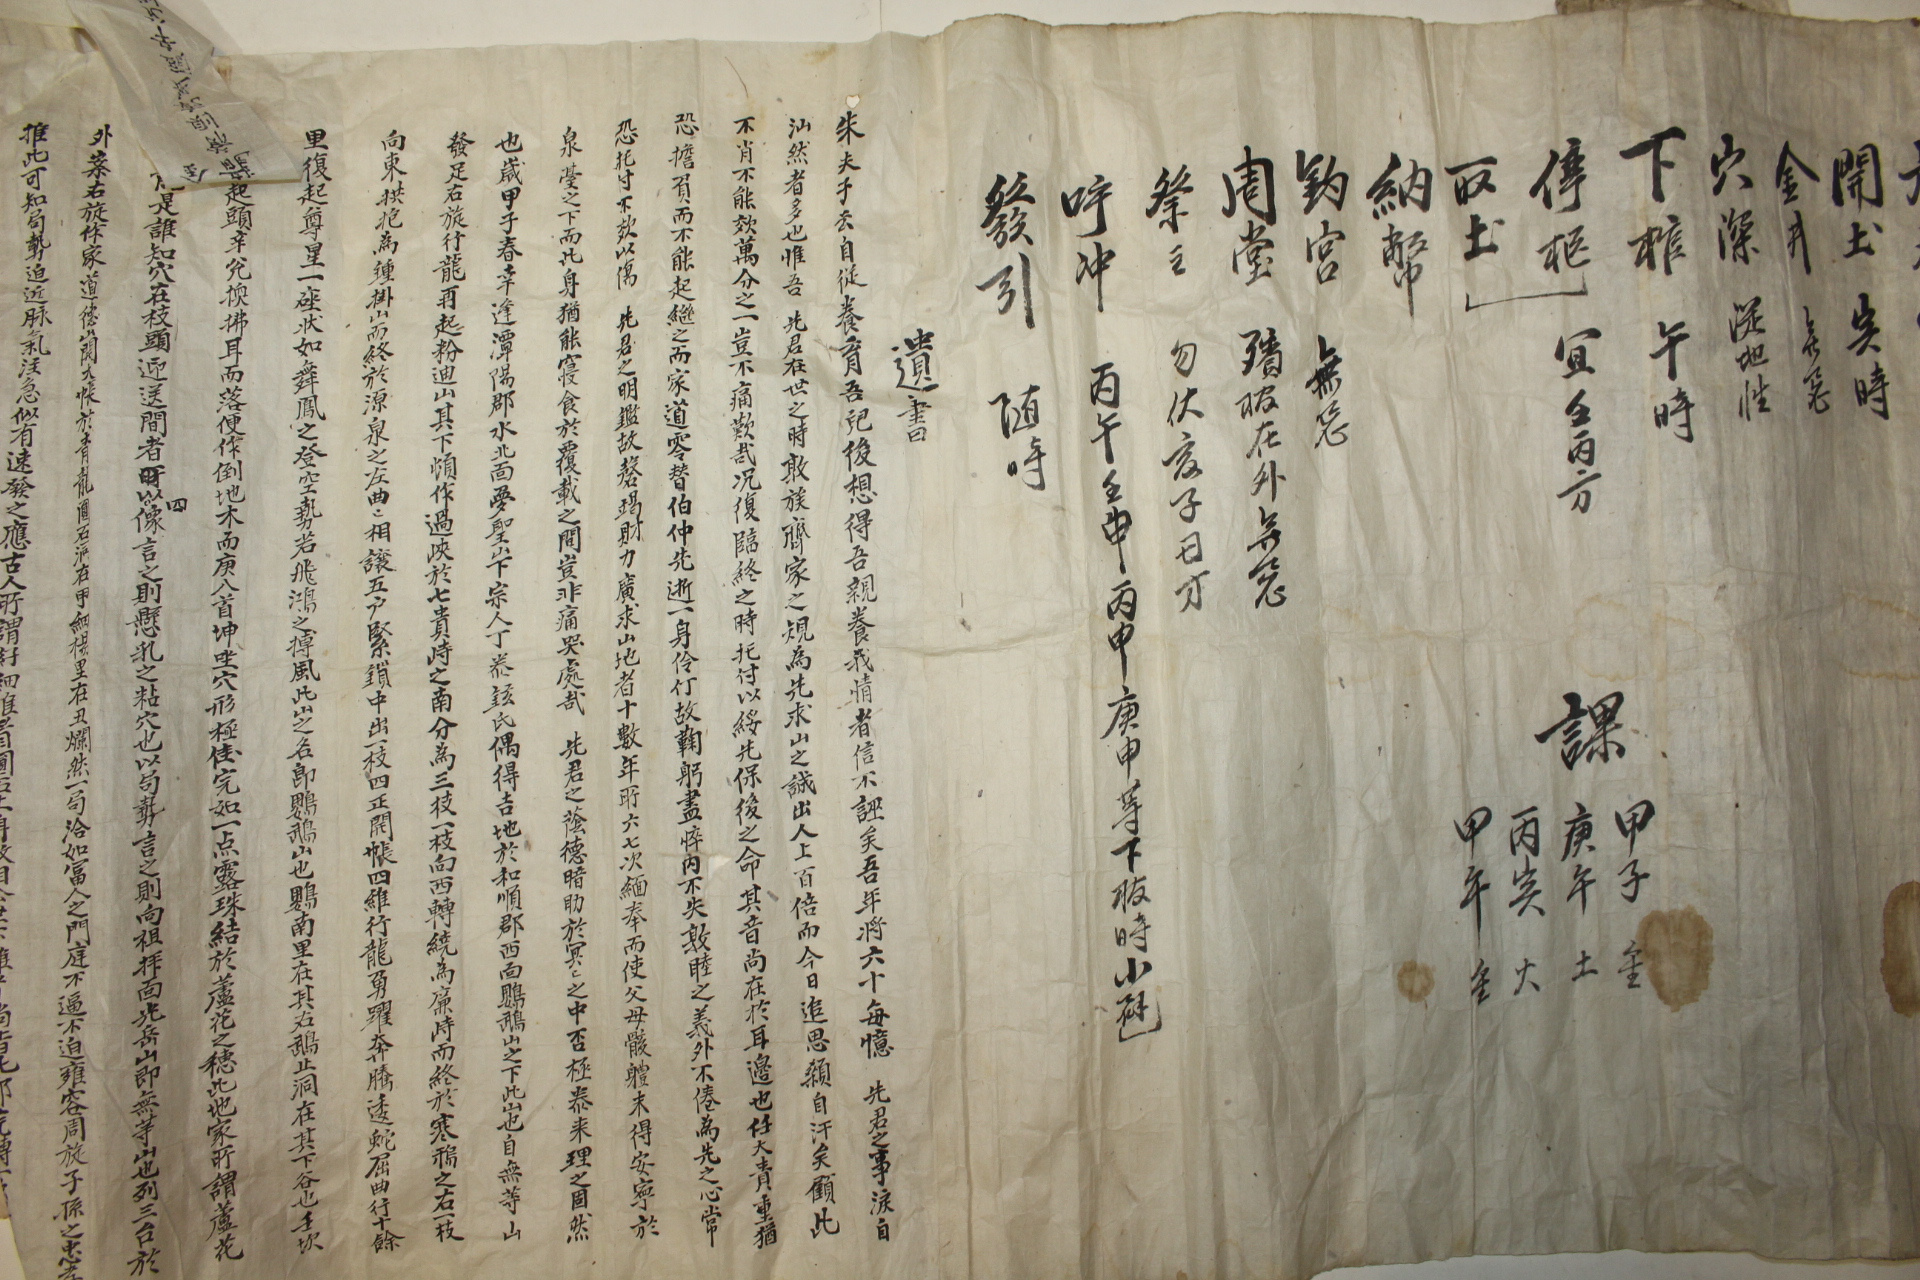 開土 亥時
金井 無忌
穴深 從地性
下棺 午時
停柩 宜壬丙方
取土
納幣
釣宮 無忌
周堂 殯服在外無忌
祭主 勿伏亥子日方
呼冲 丙午壬申丙申庚申等下服時小避
發引 随時
課
甲子 金
庚午 土
丙寅 火
甲午 金
遺書
朱夫子云自從養育吾兒後想得吾親養我情者信不誣矣吾年將六十每憶 先君之事淚自
汕然者多也惟吾 先君在世之時敦族齊家之規為先求山之誠出人上百倍而今日追思顙自汗矣顧此
不肖不能效萬分之一豈不痛歎哉况復臨終之時托付以綏先保後之命其音尚在於耳邊也任大責重猶
恐擔負而不能起繼之而家道零替伯仲先逝一身伶仃故鞠躬盡悴內不失敦睦之義外不倦為先之心常
恐托付不效以傷 先君之明鑑故罄竭財力廣求山地者十數年所六七次緬奉而使父母骸軆未得安寧於
泉臺之下而此身猶能寢食於覆載之間豈非痛哭處哉 先君之蔭德暗助於冥々之中否極泰来理之固然
也歲甲子春幸逢潭陽郡水北面夢聖山下宗人丁泰鉉氏偶得吉地於和順郡西面鸚鵡山之下此山也自無等山
發足右旋行龍再起粉迪山其下頓作過峽於七貴峙之南分為三枝一枝向西轉繞為廉峙而終於寒鴉之右一枝
向東拱抱為鍾掛山而終於源泉之左曲々相讓五戶緊鎖中出一枝四正開帳四維行龍勇躍奔騰逶蛇屈曲行十餘
里復起尊星一座状如舞鳳之登空勢若飛鴻之搏風此山之名即鸚鵡山也鸚南里在其右鵡止洞在其下谷也壬坎
起頭辛兌換拂耳而落便作倒地木而庚入首坤坐穴形極佳完如一点露珠結於蘆花之穗此地家所謂蘆花
是誰知穴在枝頭迎送間者四以像言之則懸乳之粘穴也以局勢言之則向祖拜面光岳山即無等山也列三台於
外案右旋作家道德山開大帳於青龍圓石洞在甲細楊里在丑爛然一局洽如富人之門庭不逼不迫雍容周旋子孫之忠孝
推此可知局勢迫近脉氣注急似有速發之應古人所謂